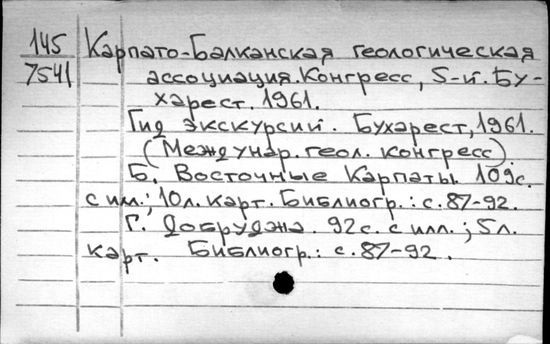 145
7541
Карпато-Балканская геологическая
ассоциация. Конгресс, 5-й. Бу-
харест. 1961.
Гид экскурсий. Бухарест, 1961.
(Междунар. геол. конгресс).
Б. Восточные Карпаты. 109с.
с ил.; 10л. карт. Библиогр.: с. 87-92.
Г. Добруджа. 92с. с илл.; 5л.
карт. Библиогр.: с. 87-92.